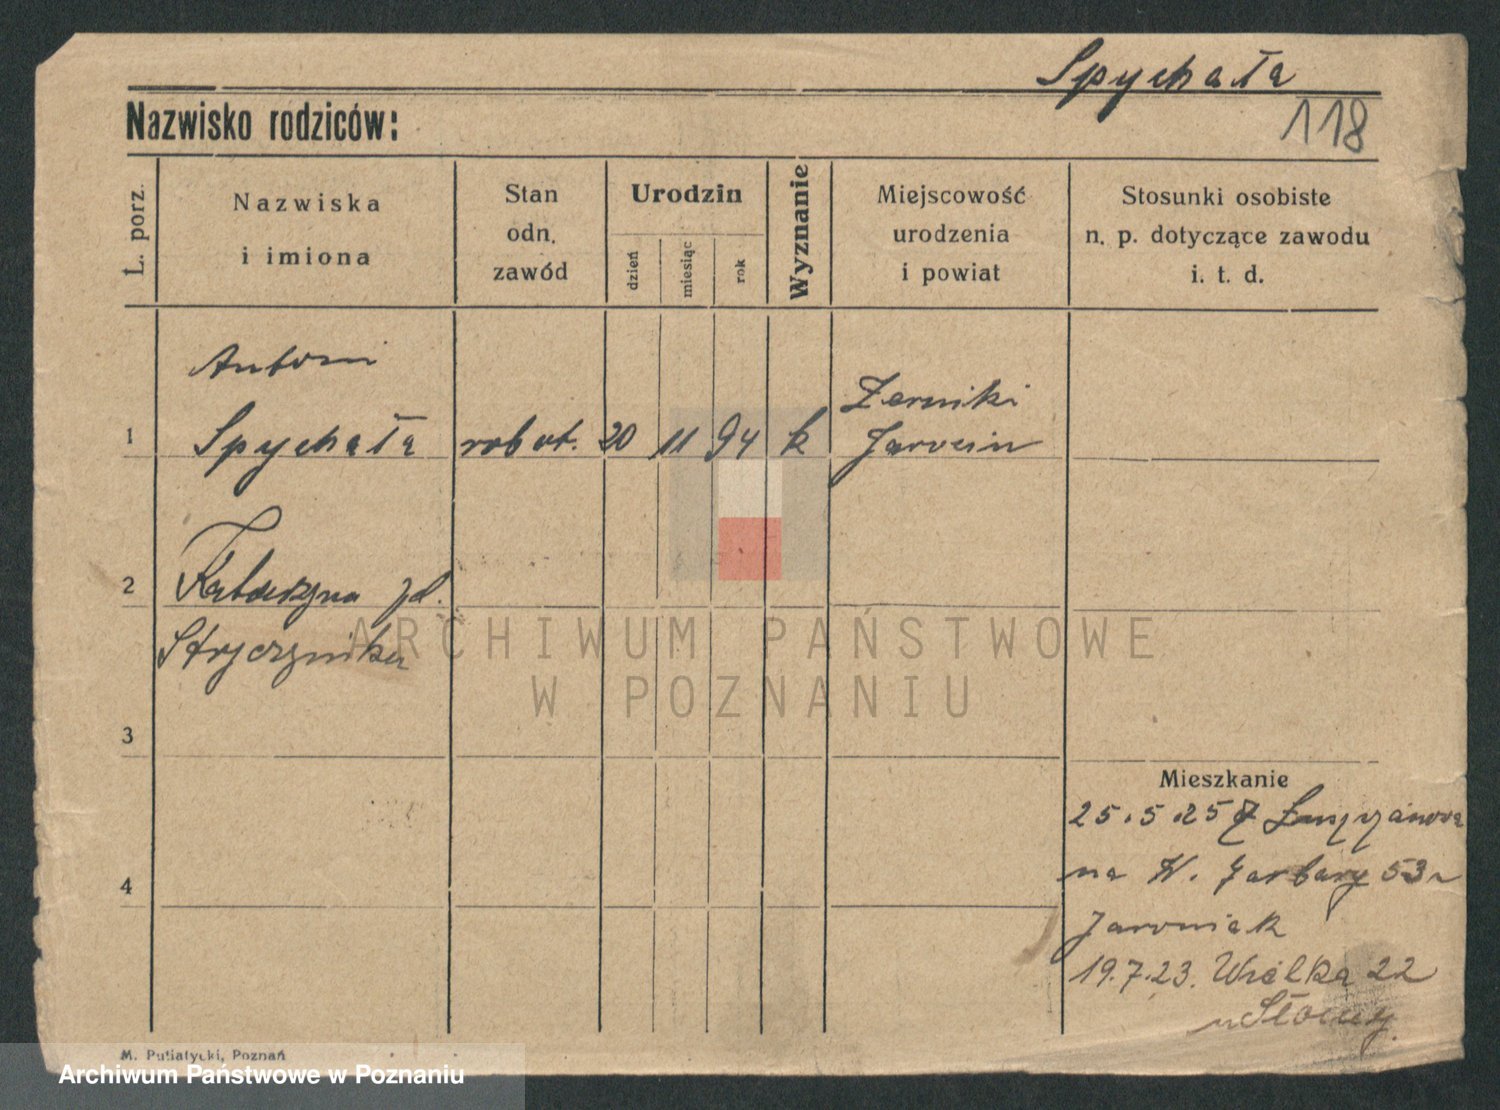 Spychała
118
Nazwisko rodziców:
L. porz.
Nazwiska
i imiona
Stan
odn.
zawód
Urodzin
dzień
miesiąc
rok
Wyznanie
Miejscowość
urodzenia
i powiat
Stosunki osobiste
n. p. dotyczące zawodu
i. t. d.
Antoni
1 Spychała robot. 20 11 94 k Żerniki
Jarocin
2 Katarzyna
3
4
Mieszkanie
25.5.25
na W. Garbary 53
19.7.23. Wielka 22
ARCHIWUM PAŃSTWOWE
W POZNANIU
M. Putiatycki, Poznań
Archiwum Państwowe w Poznaniu